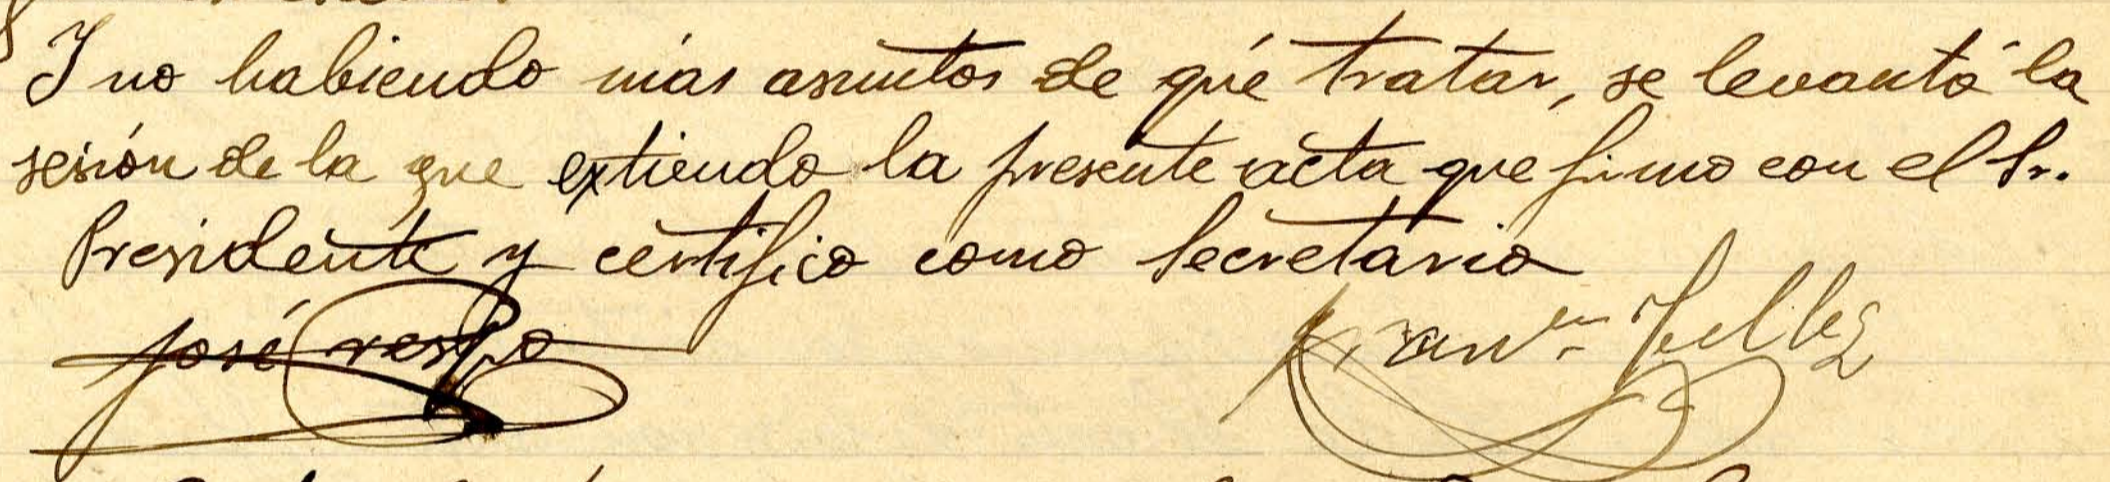 Y no habiendo más asuntos de qué tratar, se levantó la
sesión de la que extiendo la presente acta que firmo con el Sr.
Presidente y certifico como Secretario
José Crespo
Tellez